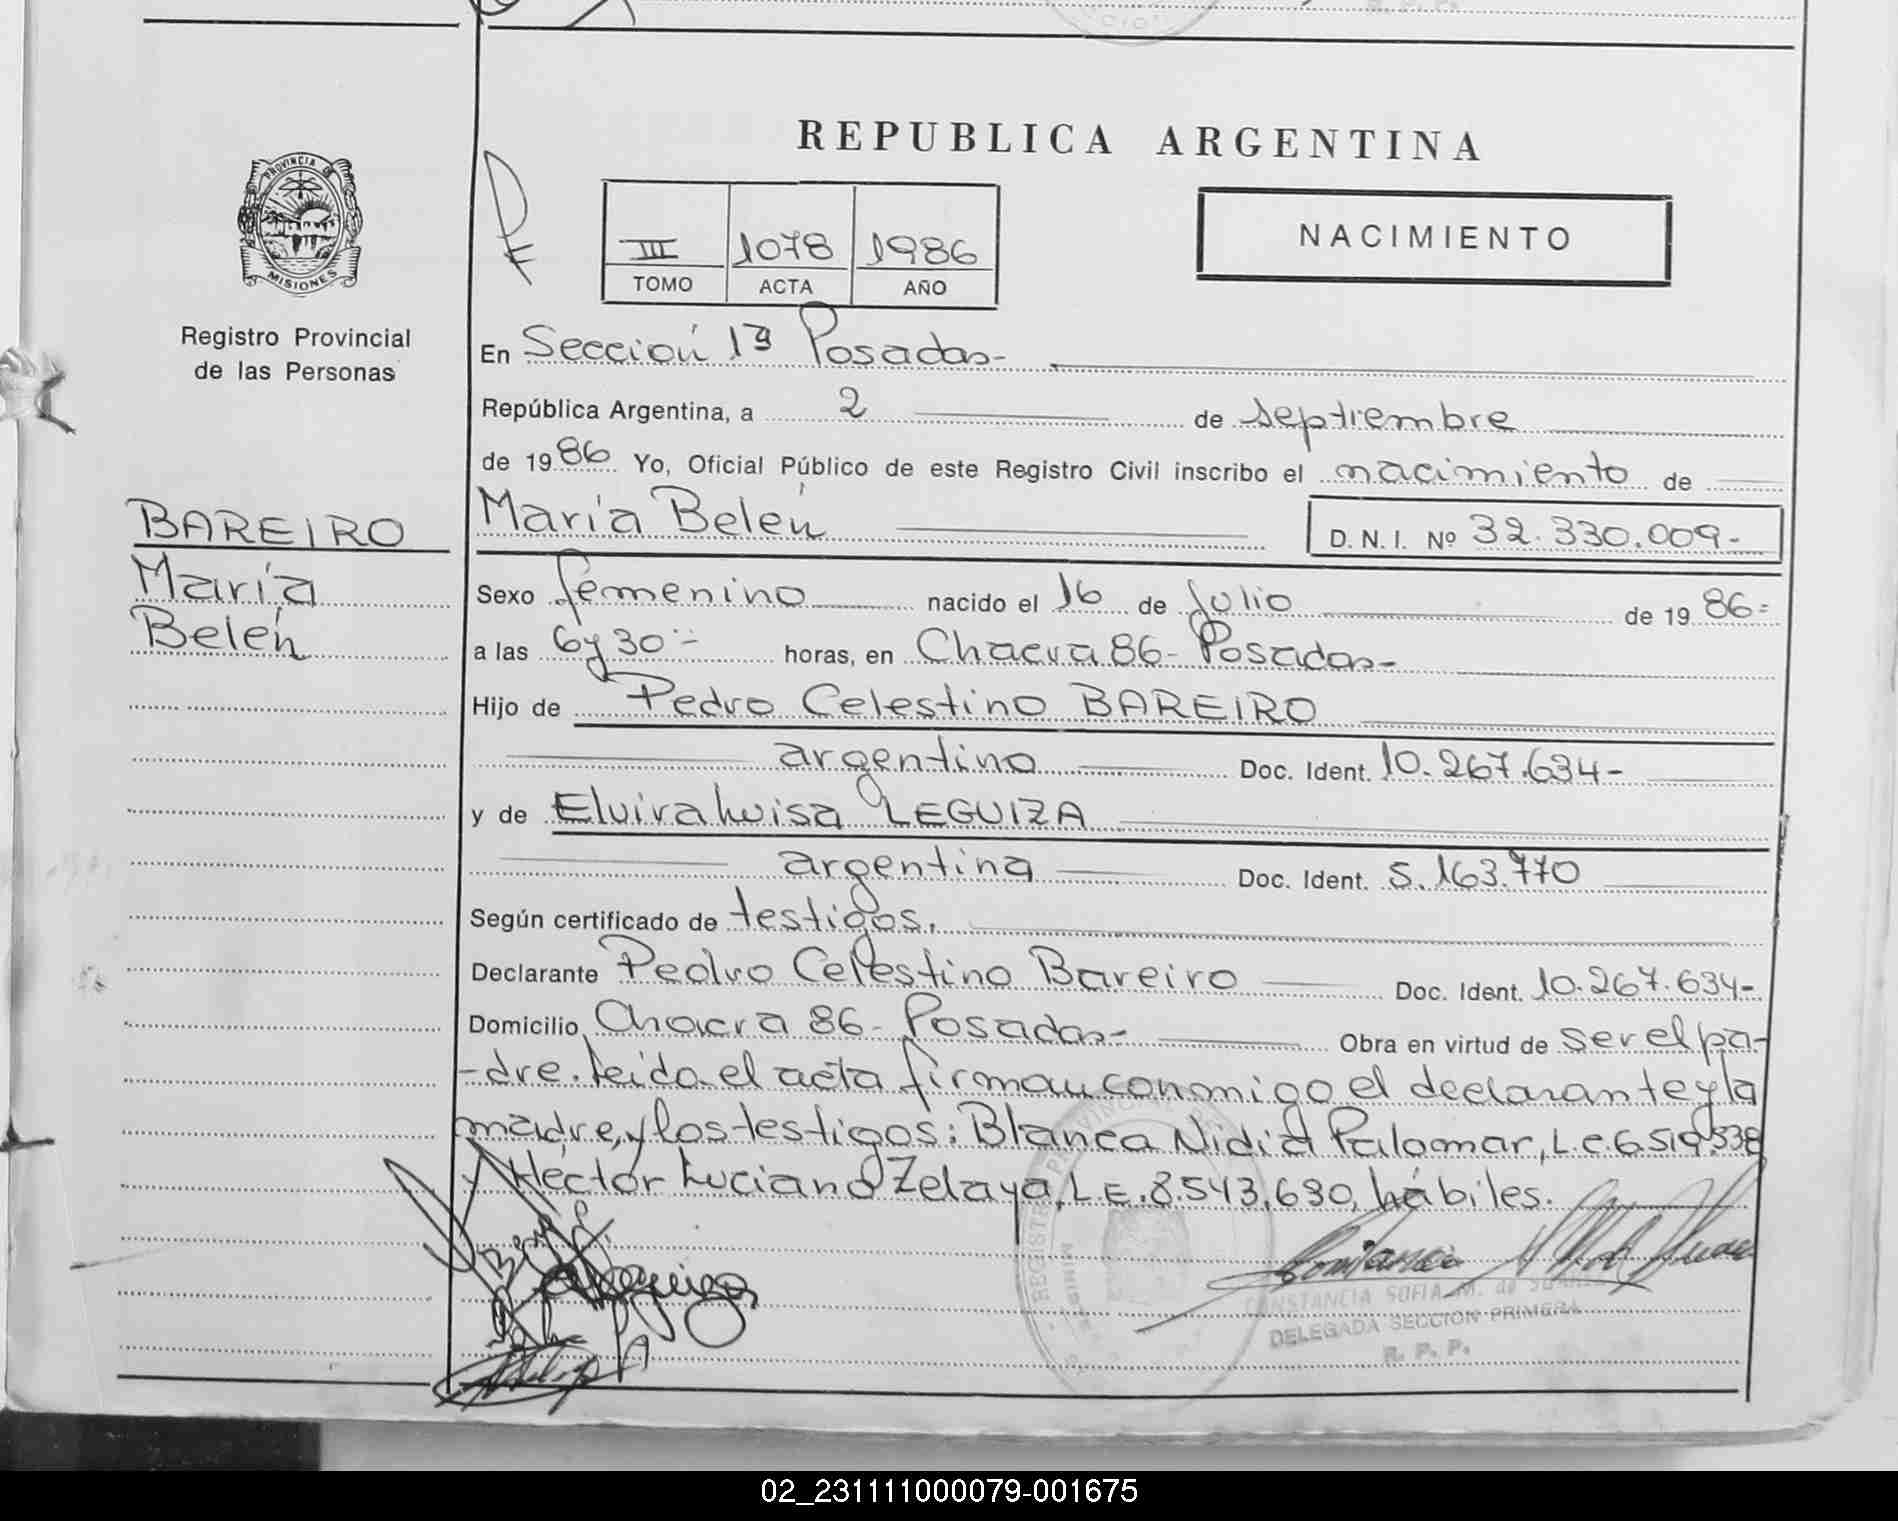 REPUBLICA ARGENTINA
PROVINCIA DE
MISIONES
Registro Provincial
de las Personas
III 1078 1986
TOMO ACTA AÑO
NACIMIENTO
BAREIRO
María
Belén
En Sección 1ª Posadas-
República Argentina, a 2 de septiembre
de 1986 Yo, Oficial Público de este Registro Civil inscribo el nacimiento de
María Belén D. N. I. Nº 32.330.009-
Sexo femenino nacido el 16 de julio de 1986=
a las 6 y 30 horas, en Chacra 86- Posadas-
Hijo de Pedro Celestino BAREIRO
argentino Doc. Ident. 10.267.634-
y de Elvira Luisa LEGUIZA
argentina Doc. Ident. 5.163.770
Según certificado de testigos.
Declarante Pedro Celestino Bareiro Doc. Ident. 10.267.634-
Domicilio Chacra 86- Posadas- Obra en virtud de ser el pa-
-dre. Leída el acta firman conmigo el declarante y la
madre, y los testigos: Blanca Nidia Palomar, L.C. 6.519.338
y Héctor Luciano Zelaya, L.E. 8.543.630, hábiles.
CONSTANCIA SOFIA M. de SUAREZ
DELEGADA SECCION PRIMERA
R. P. P.
02_231111000079-001675